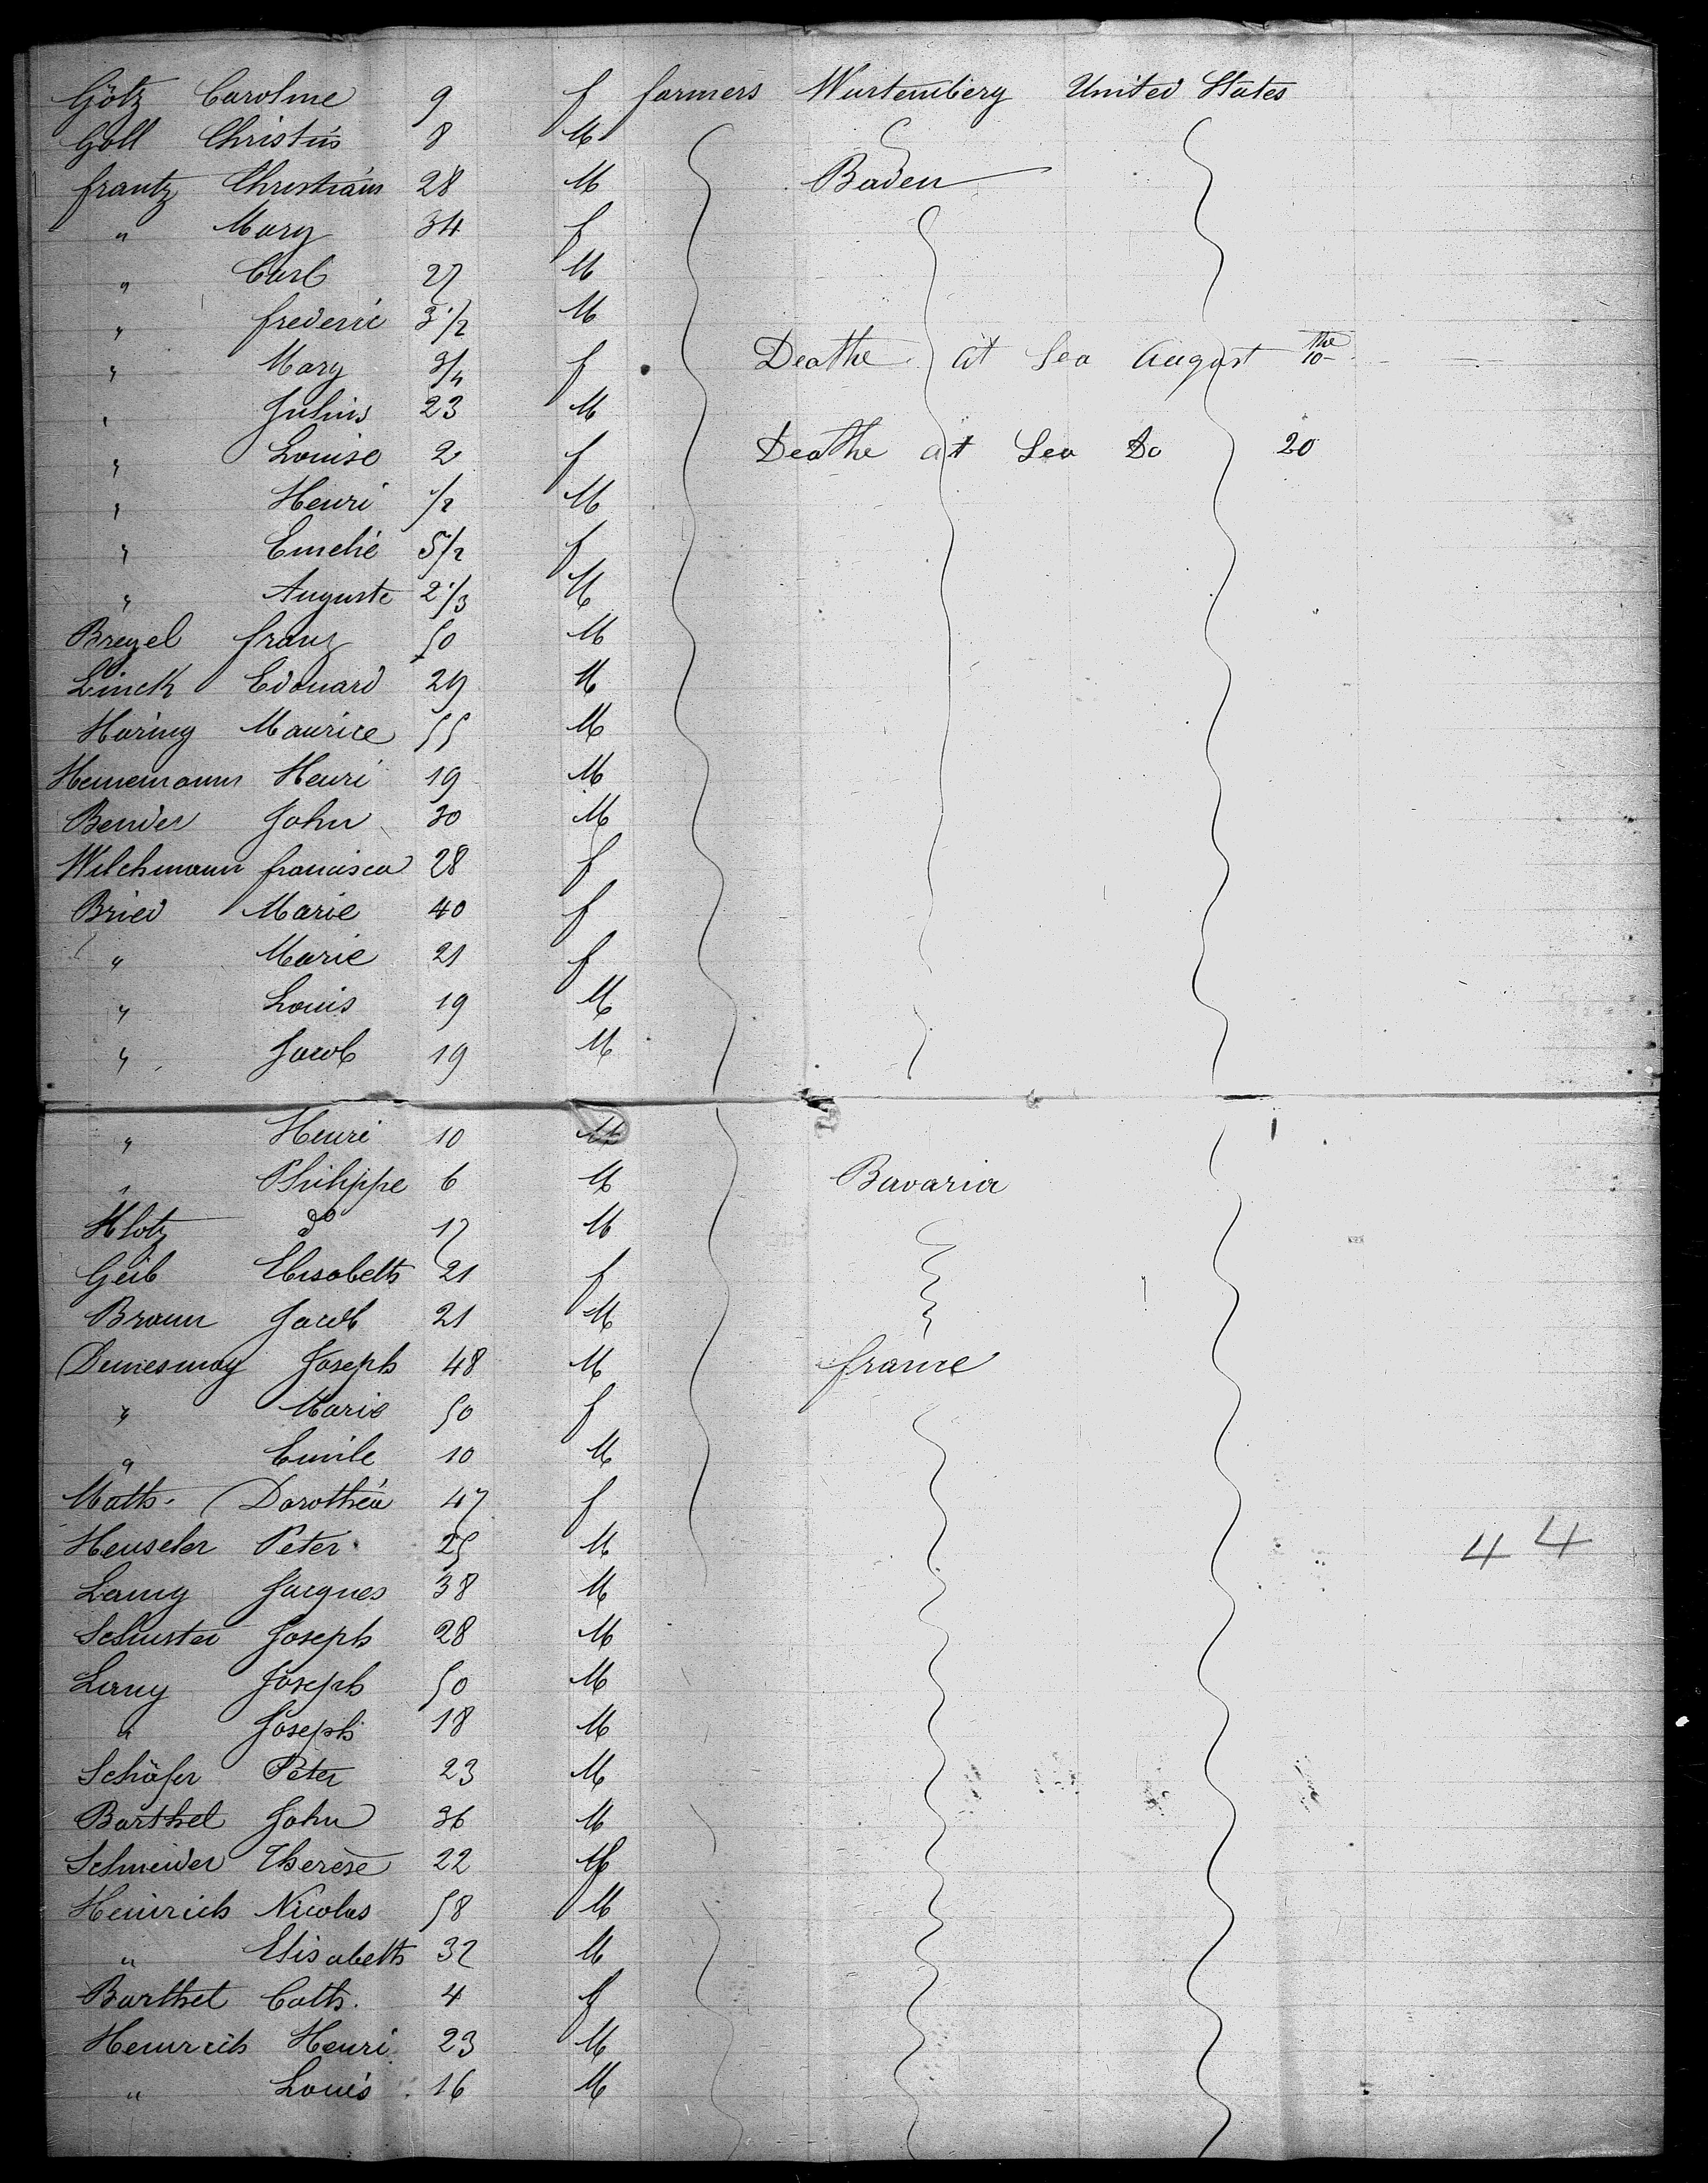 Götz Caroline 9 f farmers Wurtemberg United States
Goll Christ:us 8 M
frantz Christians 28 M Baden
" Mary 34 f
" Carl 27 M
" frederic 3 1/2 M
" Mary 3/4 f Deathe at Sea August 10 the
" Julius 23 M
" Louise 2 f Deathe at Sea Do 20
" Henri 1/2 M
" Emelie 5/2 f
" Auguste 2 1/3 M
Bregel franz 50 M
Linck Edouard 29 M
Haring Maurice 55 M
Heinemann Henri 19 M
Bender John 30 M
Wilchmann francisca 28 f
Bried Marie 40 f
" Marie 21 f
" Louis 19 M
" Jacob 19 M
" Henri 10 M
" Philippe 6 M Bavaria
Klotz do 17 M
Geib Elisabeth 21 f
Braun Jacob 21 M
Demesmay Joseph 48 M france
" Marie 50 f
" Emile 10 M
Math. Dorothéa 47 f
Heuseler Peter 25 M 44
Lamy Jacques 38 M
Schuster Joseph 28 M
Lany Joseph 50 M
" Joseph 18 M
Schäfer Peter 23 M
Barthel John 36 M
Schneider Therese 22 f
Heinrich Nicolas 58 M
" Elisabeth 32 M
Barthel Cath. 4 f
Heinrich Henri 23 M
" Louis 16 M